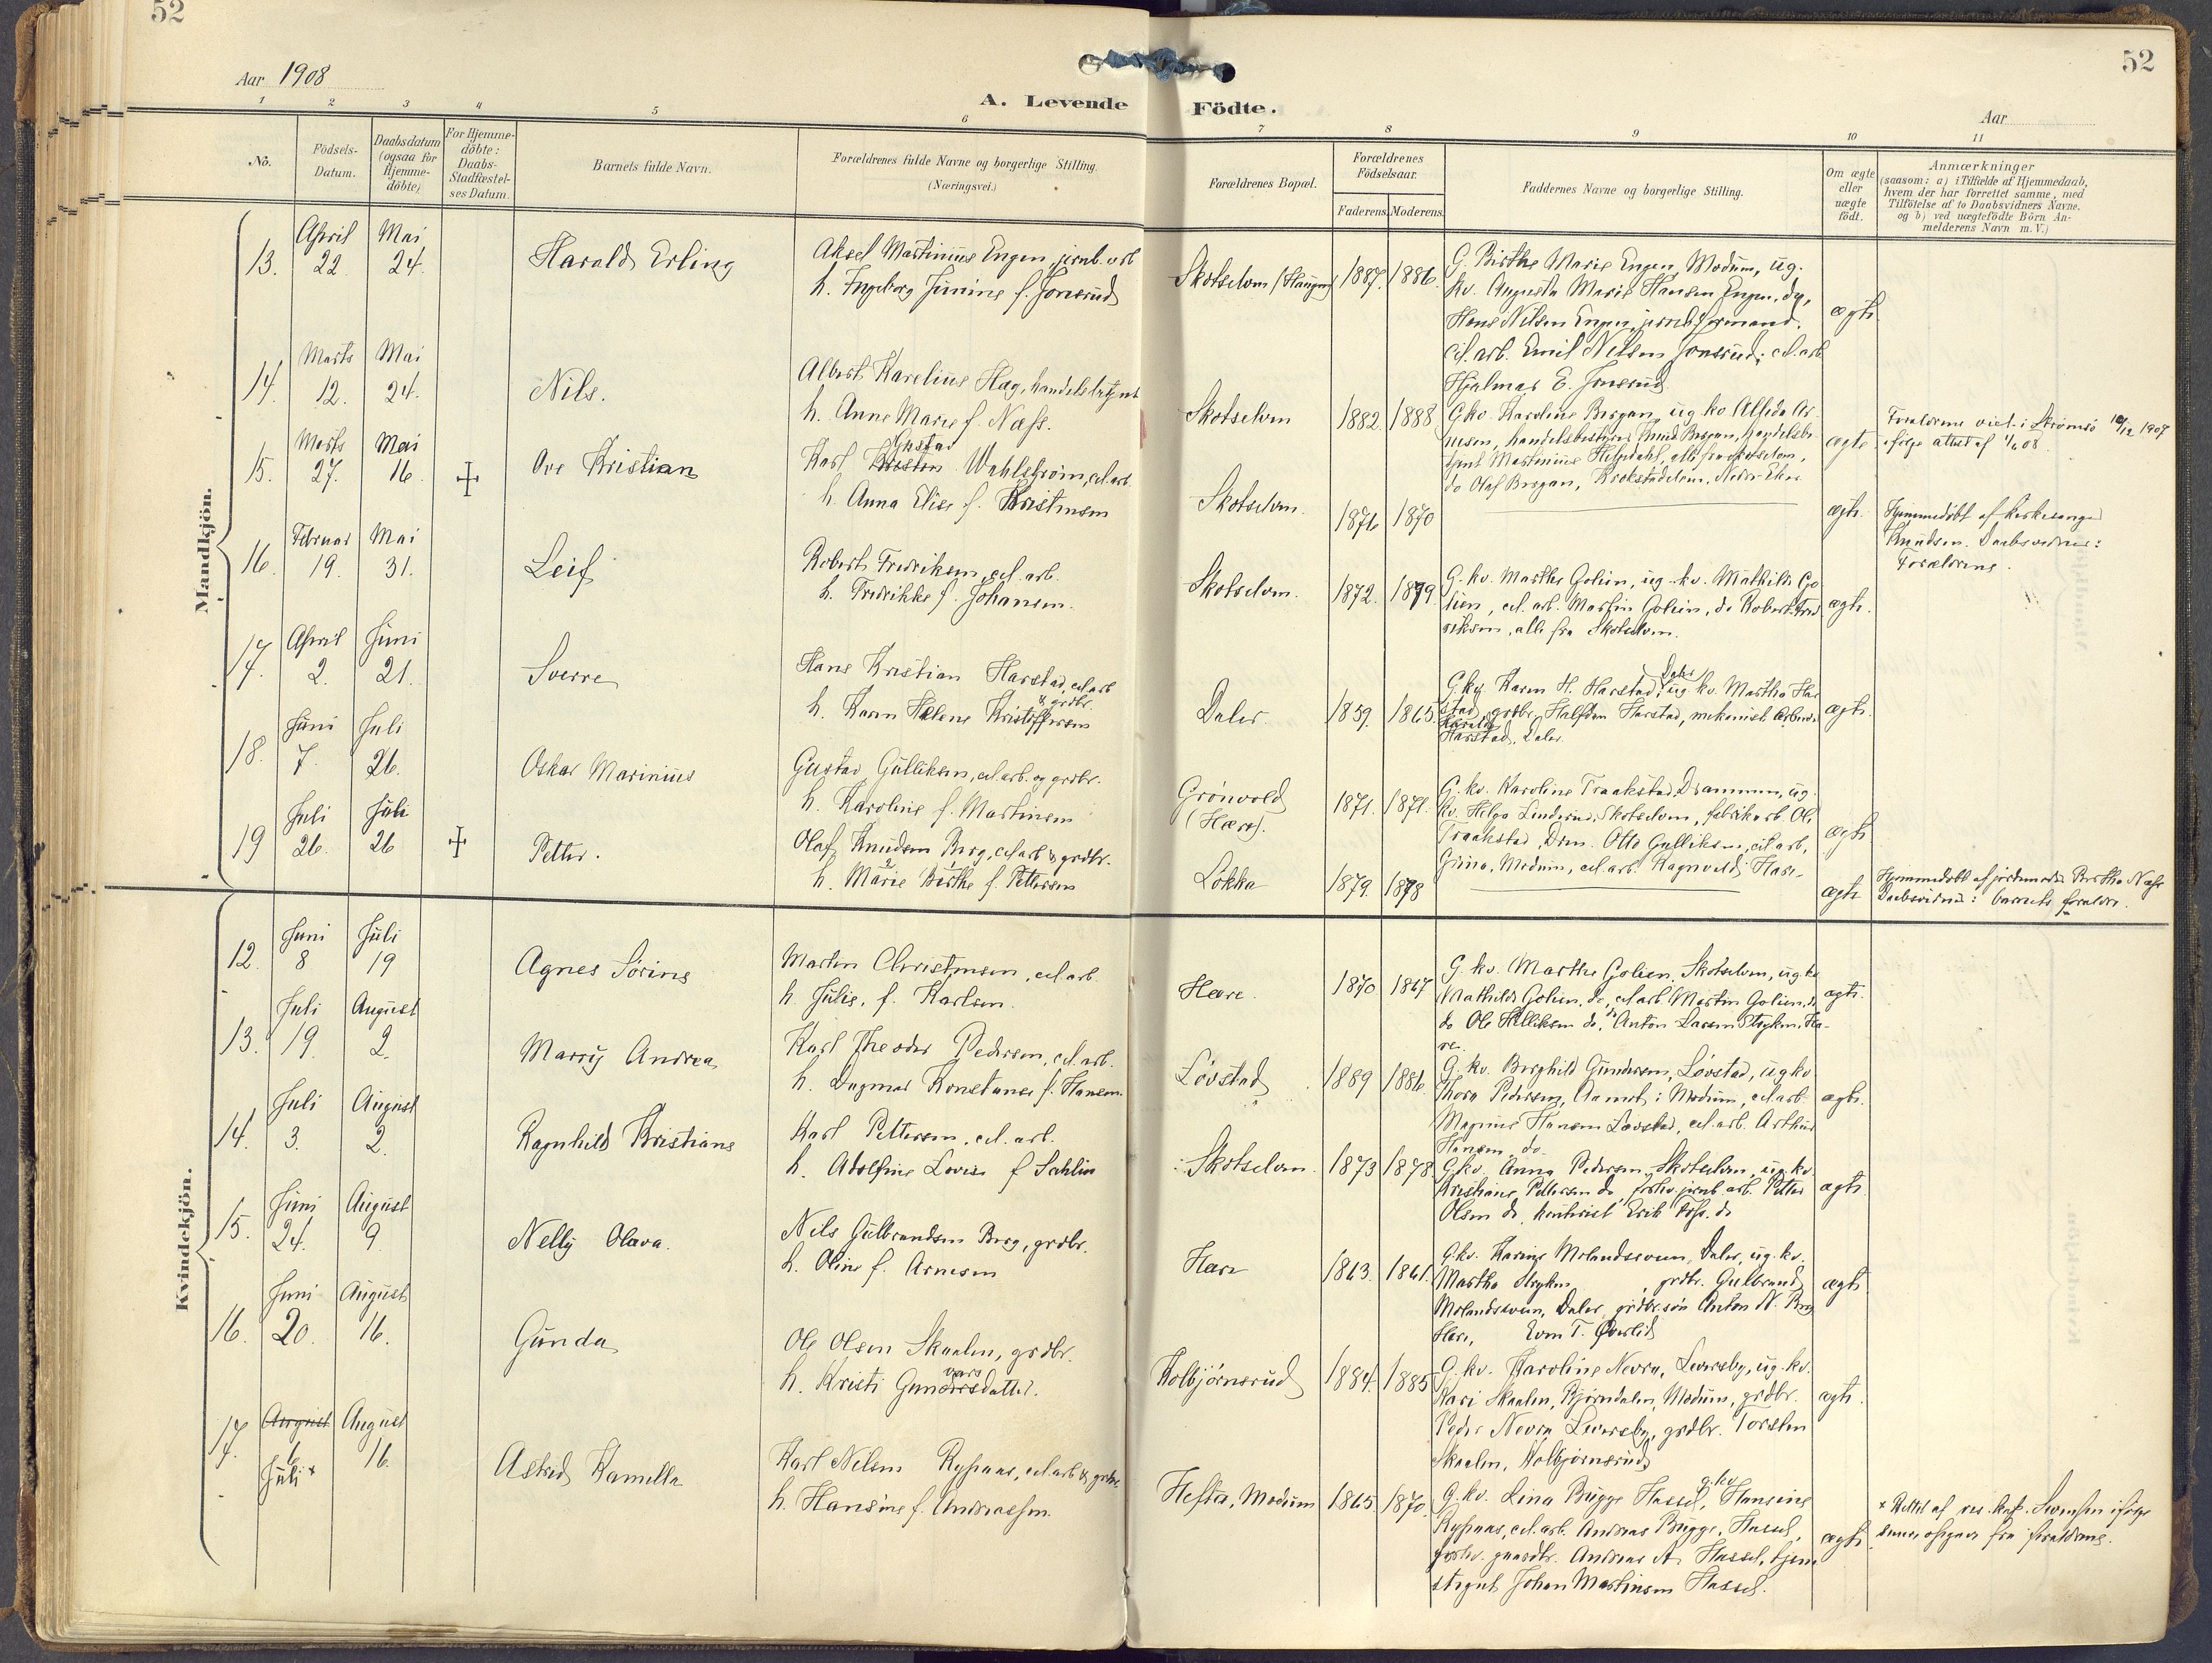 52
52
Aar 1908
A. Levende Födte.
Aar
1 2 3 4 5 6 7 8 9 10 11
No.
Födsels-Datum.
Daabsdatum (ogsaa for Hjemme-döbte)
For Hjemme-döbte: Daabs-Stadfæstel-ses Datum.
Barnets fulde Navn.
Forældrenes fulde Navne og borgerlige Stilling. (Næringsvei.)
Forældrenes Bopæl.
Forældrenes Födselsaar.
Faderens. Moderens.
Faddernes Navne og borgerlige Stilling.
Om ægte eller uægte födt.
Anmærkninger
(saasom: a) i Tilfælde af Hjemmedaab,
hvem der har forrettet samme, med
Tilföielse af to Daabsvidners Navne.
og b) ved uægtefödte Börn An-
melderens Navn m. V.)
Mandkjön.
13. April 22. Mai 24. Harald Erling
Aksel Martinius Engen, jernb. arb
h. Ingeborg Jünine f. Jonsrud
Skotselven (Haugen) 1887. 1886.
G. Birthe Marie Engen, Modum, üg.
kv. Augusta Marie Hansen Engen, do,
Hans Nilsen Engen, jernb. formand,
cel. arb. Emil Nilsen Jonsrud, cel. arb
Hjalmar E. Jonsrud
ægte
14. Marts 12. Mai 24. Nils.
Albert Karelius Hag, handelsbetjent
h. Anne Marie f. Næss.
Skotselven 1882. 1888
G. kv. Karoline Bergan, üg. kv. Alfida Ar-
nesen, handelsbestyrer Bergan, handelsbe-
tjent Martinius , alle fra Skotselven,
do Olaf Bergan, Krokstadelven, Nedre Eker
ægte
Forældrene viet i Strømsö 10/12 1907
ifölge attest af
15. Marts 27. Mai 16. ‡ Ove Kristian
Karl Gustav Wahlström, cel. arb.
h. Anna Elise f. Kristensen
Skotselven. 1876 1870
ægte.
Hjemmedöbt af kirkesanger
Knudsen. Daabsvidner:
Forældrene.
16. Februar 19. Mai 31. Leif
Robert Fredriksen, cel. arb.
h. Fredrikke f. Johansen.
Skotselven. 1872. 1879.
G. kv. Marthe Golien, üg. kv. Mathilde Go-
lien, cel. arb. Martin Golien, do Robert Fred-
riksen, alle fra Skotselven.
ægte.
17. April 2. Juni 21. Sverre
Hans Kristian Harstad, cel. arb & grdbr.
h. Karen Helene Kristoffersen
Daler. 1859. 1865.
G. kv. Karen H. Harstad, Daler, üg. kv. Martha Har-
stad, grdbr. Halfdan Harstad, mekanisk arbeider
Harald Harstad, Daler.
ægte.
18. Juni 7. Juli 26. Oskar Marinius
Gustav Gulliksen, cel. arb. og grdbr.
h. Karoline f. Martinsen
Grönvold (Hære). 1871. 1871.
G. kv. Karoline Traakstad, Drammen, üg.
kv. Helga Linderud, Skotselven, fabrikarb. Ole
Traakstad, Drm. Otto Gulliksen, cel. arb,
, Modum, cel. arb. Ragnvald Hære
ægte
19 Juli 26. Juli 26 ‡ Petter.
Olaf Knudsen Berg, cel arb & grdbr.
h. Marie Birthe f. Pettersen
Lokka 1879. 1878
ægte
Hjemmedöbt af jordemoder Bertha Næss
Daabsvidner: barnets forældre.
Kvindekjön.
12. Juni 8 Juli 19 Agnes Sörine
Martin Christensen, cel. arb.
h. Julie, f. Karlsen.
Hære. 1870 1867
G. kv. Marthe Golien, Skotselven, üg. kv
Mathilde Golien, do, cel. arb. Martin Golien, do
do Ole Helliksen do, do Anton Larsen Stryken, Hæ-
re.
ægte.
13. Juli 19. August 2. Marry Andrea
Karl Theodor Pedersen, cel. arb.
h. Dagmar Konstanse f. Hansen.
Lövstad 1889 1886.
G. kv. Borghild Gundersen, Lövstad, üg kv
Thora Pedersen, Aamot i Modum, cel. arb
Magnus Hansen Lövstad, cel. arb. Arthur
Hansen do.
ægte.
14. Juli 3. August 2. Ragnhild Kristiane
Karl Pettersen, cel. arb.
h. Adolfine Lovise f. Sahlin
Skotselven. 1873 1878.
G. kv. Anna Pedersen, Skotselven, üg. kv
Kristiane Pettersen do, forhv. jernb. arb. Petter
Olsen do, Erik Foss. do
ægte.
15. Juni 24. August 9 Nelly Olava.
Nils Gulbrandsen Berg, grdbr.
h. Oline f. Arnesen
Hære 1863. 1861.
G. kv. Karine Molandsveen, Daler, üg. kv.
Martha Stryken, grdbr. Gulbrand
Molandsveen, Daler, grdbr. sön Anton N. Berg
Hære, Even T. Överlid
ægte
16. Juni 20. August 16. Gunda
Ole Olsen Skaalen, grdbr.
h. Kristi Gunvarsdatter.
Kolbjörnsrud 1884. 1885
G. kv. Karoline Nevra, Leversby, üg. kv.
Kari Skaalen, Bjørndalen, Modum, grdbr.
Peder Nevra Leversby, grdbr. Torsten
Skaalen, Kolbjørnsrud
ægte.
17. August 6 Juli x August 16. Astrid Kamilla
Karl Nilsen Rypaas, cel. arb & grdbr
h. Hansine f. Andreassen.
Hesta, Modum 1865 1870.
G. kv. Lina Brygge Hassel, g. kv. Hansine
Rypaas, cel. arb. Andreas Brygge, Hassel,
forhv. gaardbr. Andreas A. Hassel, tjene-
stegut Johan Martinsen Hassel.
ægte
x Rettet af res. kap. Svensen ifölge
senere opgave fra forældrene.